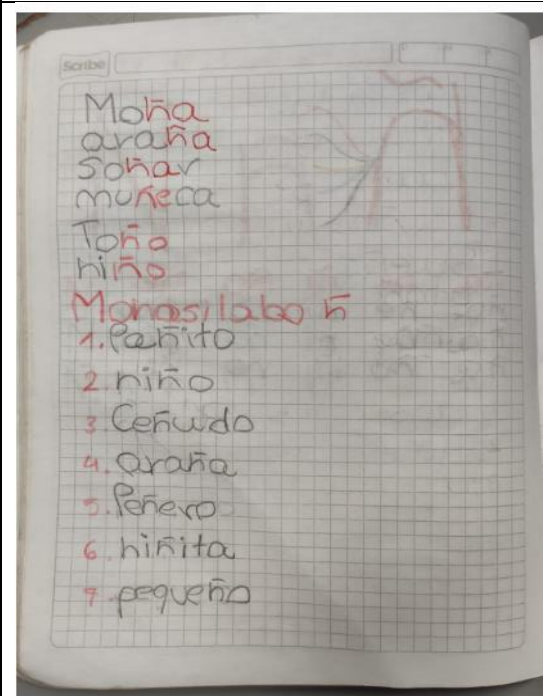 Scribe
Moña
araña
soñar
muñeca
Toño
niño
Monosilabo ñ
1. Pañito
2 niño
3 Ceñudo
4. araña
5. Peñero
6. niñita
7 pequeño